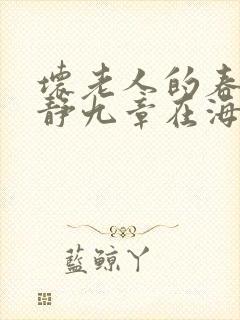 壞老人的春
靜九章在海
藍鯨丫